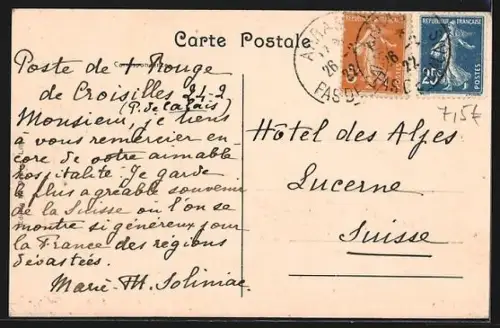 Carte Postale
Correspondance
Poste de + Rouge
de Croisilles 24-2
(P. de Calais)
Monsieur, je tiens
à vous remercier en-
core de votre aimable
hospitalité. Je garde
le plus agréable souvenir
de la Suisse où l'on se
montre si généreux pour
la France des régions
dévastées.
Marie-M. Soliniac
Hôtel des Alpes
Lucerne
Suisse
REPUBLIQUE FRANÇAISE
REPUBLIQUE FRANÇAISE
25
POSTES
ARRAS
26-2
22
PAS DE
26
22
7,5€